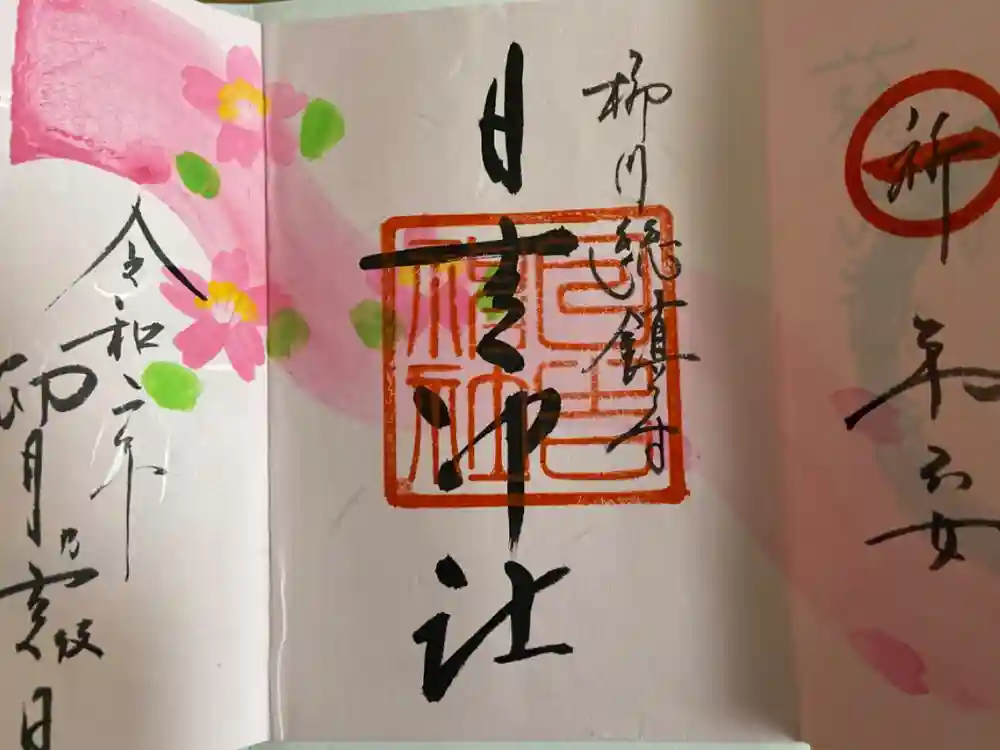 祈
年六女
柳川総鎮守
日吉神社
日吉神社
令和二年
卯月乃
日